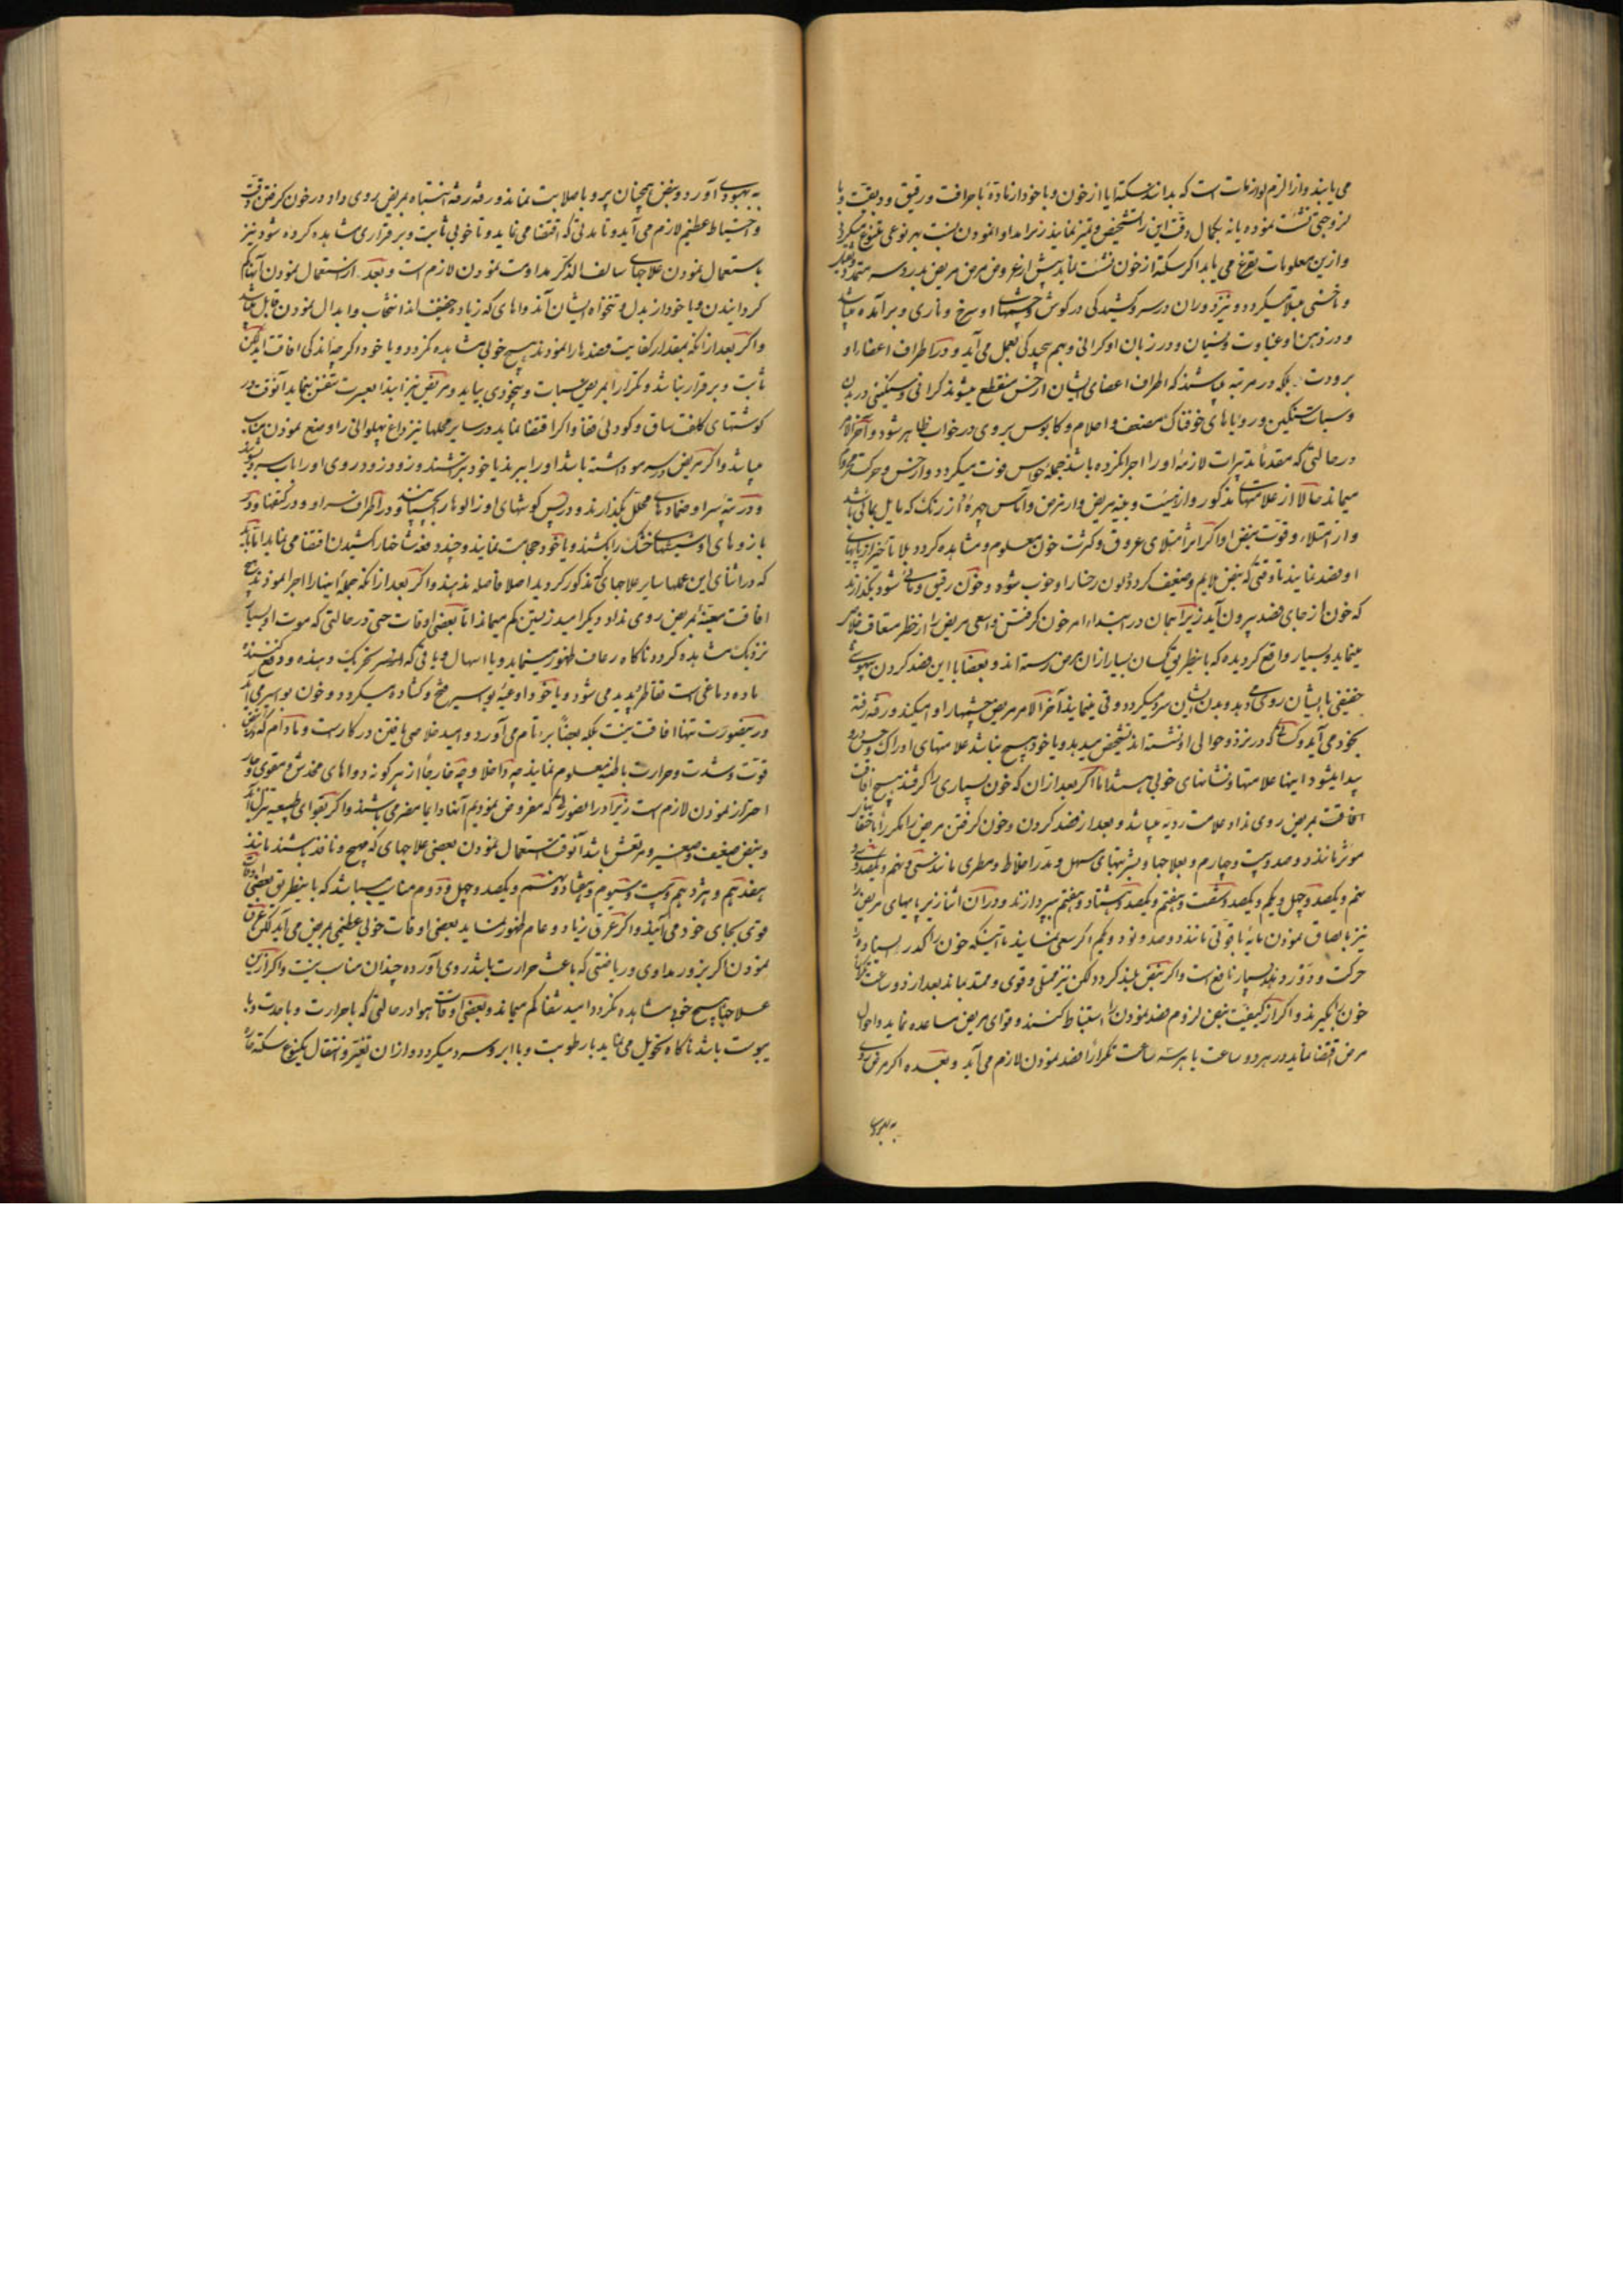 می یابند و از الزم لوازمات است که بدانند سکته ایا از خون و یا خود از ماده با حرافت و رقیق و دیقت و یا
لزوجتی نشئت نموده یا نه بکمال دقت این را تشخیص و تمیز نمایند زیرا مداوا نمودن نسبت بهر نوعی متنوع میگردد
و ازین معلومات بفرغ می یابد اگر سکته از خون نشئت نماید پیش از عروض مرض مریض بدرد سر
و میگردد و نیز دوران در سر و کشیدگی در گوش و چشمهای او سرخ و ناری و برآمده میباشد
و در ذهن او غباوت و نسیان و در زبان او گرانی و هم پیچیدگی بعمل می آید و در اطراف اعضاء او
برودت بلکه در مرتبه میباشند که اطراف اعضای ایشان از حس منقطع میشوند گرانی و سنگینی در بدن
و سبات سنگین و رویاهای خوفناک مضعف و احلام و کابوس بر وی در خواب ظاهر شود و آخر الامر
در حالتی که مقدما تدبیرات لازمه او را اجرا نکرده باشند جمله حواس فوت میگردد و از حس و حرکت محروم
میماند حالا از علامتهای مذکور و از هیئت و جثه مریض و از مرض و آماس چهره او از رنگ که مایل بمائی باشد
و از امتلاء و قوت نبض او اگر اثر امتلای عروق و کثرت خون معلوم و مشاهده گردد بلا تأخیر از پایهای
او فصد نمایند تا وقتی که نبض ملایم و ضعیف گردد و لون رخسار او خوب شود و خون رقیق و مائی شود بگذارند
که خون از جای فصد بیرون آید زیرا همان در ابتداء امر خون گرفتن واسعی مریض را از خطر متعاف خلاص
مینماید و بسیار واقع گردیده که باینطریق کسان بسیار از آن مرض رسته اند و بعضا با این فصد کردن بیهوشی
خفیفی با ایشان روی میدهد و بدن ایشان سرد میگردد و قی مینمایند آخر الامر مریض چشمها را وا میکند و رفته رفته
بخود می آید و کسانی که در نزد و حوالی او نشسته اند تشخیص میدهد و یا خود هیچ نباشد علامتهای ادراک و حس در او
پیدا میشود اینها علامتها و نشانهای خوبی هستند اما اگر بعد از آن که خون بسیاری را گرفتند هیچ افاقت
افاقت بمریض روی نداد علامت ردیه میباشد و بعد از فصد کردن و خون گرفتن مریض را مکررا با حقنهای
مؤثر مانند دوصد و بیست و چهارم و بعلاجها و شربتهای مسهل و مدر اخلاط و مطری مانند شصت و پنجم و یکصد و سی و
پنجم و یکصد و چهل و یکم و یکصد و شصت و هفتم و یکصد و هشتاد و هفتم بپردازند و در آن اثنا زیر پایهای مریض را
نیز بالصاق نمودن مایه یاقوتی مانند دوصد و نود و یکم اگر سعی نمایند تا اینکه خون راکد ایستاده را
حرکت و دور دهند بسیار نافع است و اگر نبض بلند گردد لکن نیز ممتلی و قوی و ممتد بماند بعد از دو ساعت تکرار
خون بگیرند و اگر از کیفیت نبض لزوم فصد نمودن را استنباط کنند و قوای مریض مساعده نماید و احوال
مرض اقتضا نماید در هر دو ساعت یا هر سه ساعت تکرارا فصد نمودن لازم می آید و بعده اگر مرض روی
به بهبودی
به بهبودی آورد و نبض همچنان پر و با صلابت نماند و رفته رفته انتباه بمریض روی داد در خون گرفتن دقت
و احتیاط عظیم لازم می آید و تا مدتی که اقتضا می نماید و تا خوبی ثابت و برقراری مشاهده کرده شود نیز
باستعمال نمودن علاجهای سالف الذکر مداومت نمودن لازم است و بعد از استعمال نمودن
گردانیدن و یا خود از بدل و تنخواه ایشان آن دواهای که زیاده خفیف اند انتخاب و ابدال نمودن قابل میباشد
و اگر بعد از آنکه بمقدار کفایت فصدها را نمودند هیچ خوبی مشاهده نگردد و یا خود اگر چه اندکی افاقت آید لکن
ثابت و برقرار نباشد و تکرارا بمریض سبات و بیخودی بیاید و مریض نیز ابتدا بعسرت تنفس نماید آنوقت در
گوشتهای کلفت ساق و گودی قفا و اگر اقتضا نماید در سایر محلها نیز داغ پهلوانی را وضع نمودن مناسب
میباشد و اگر مریض در سر مو داشته باشد او را ببرند یا خود بتراشند و زود زود روی او را با سرکه بشویند
و در تپه سر او ضمادهای محلل بگذارند و در پس گوشهای او زالوها را بچسپانند و در اطراف سر او و در کتفها و در
بازوهای او شیشهای خشک را بکشند و یا خود حجامت نمایند و چند دفعه شاخها را کشیدن اقتضا می نماید اما باید
که در اثنای این عملها سایر علاجهای که مذکور گردید اصلا فاصله ندهند و اگر بعد از آنکه جمله اینها را اجرا نمودند هیچ
افاقت معینه بمریض روی نداد دیگر امید زیستن کم میماند اما بعضی اوقات حتی در حالتی که موت او بسیار
نزدیک مشاهده گردد ناگاه رعاف ظهور مینماید و یا اسهال و یا قی که از سر تحریک دهنده و دفع کننده
ماده دماغی است فقاطر پدید می شود و یا خود اوعیه بواسیر منفتح و گشاده میگردد و خون بواسیر می آید
در اینصورت تنها افاقت نیست بلکه بعضا برء تام می آورد و امید خلاص یافتن در کار است و مادام که در نبض
قوت و شدت و حرارت باطنیه معلوم نمایند چه داخلا و چه خارجا از هرگونه دواهای مخدش و مقوی و حار
احتراز نمودن لازم است زیرا در الصورتی که مفروض نمودیم آنها دایما مضر می باشند و اگر بقوای طبیعیه تنزل آید
و نبض ضعیف و صغیر و مرتعش باشد آنوقت استعمال نمودن بعضی علاجهای که مهیج و نافذ باشند مانند
هفدهم و هژدهم و بیست و سیوم و هفتاد و هشتم و یکصد و چهل و دوم مناسب میباشد که باینطریق بعضی اوقات
قوتی بجای خود می آیند و اگر عرق زیاد و عام ظهور نماید بعضی اوقات خوبی عظیمی بمریض می آید لکن عرق
نمودن اگر بزور مداوی و ریاضتی که باعث حرارت باشد روی آورده چندان مناسب نیست و اگر ازین
علاجها هیچ خوبی مشاهده نگردد امید شفا کم میماند و بعضی اوقات هوا در حالتی که با حرارت و با حدت و با
یبوست باشد ناگاه تحویل می نماید با رطوبت و یا ابر و سرد میگردد و از آن تغیر و انتقال یکنوع سکته